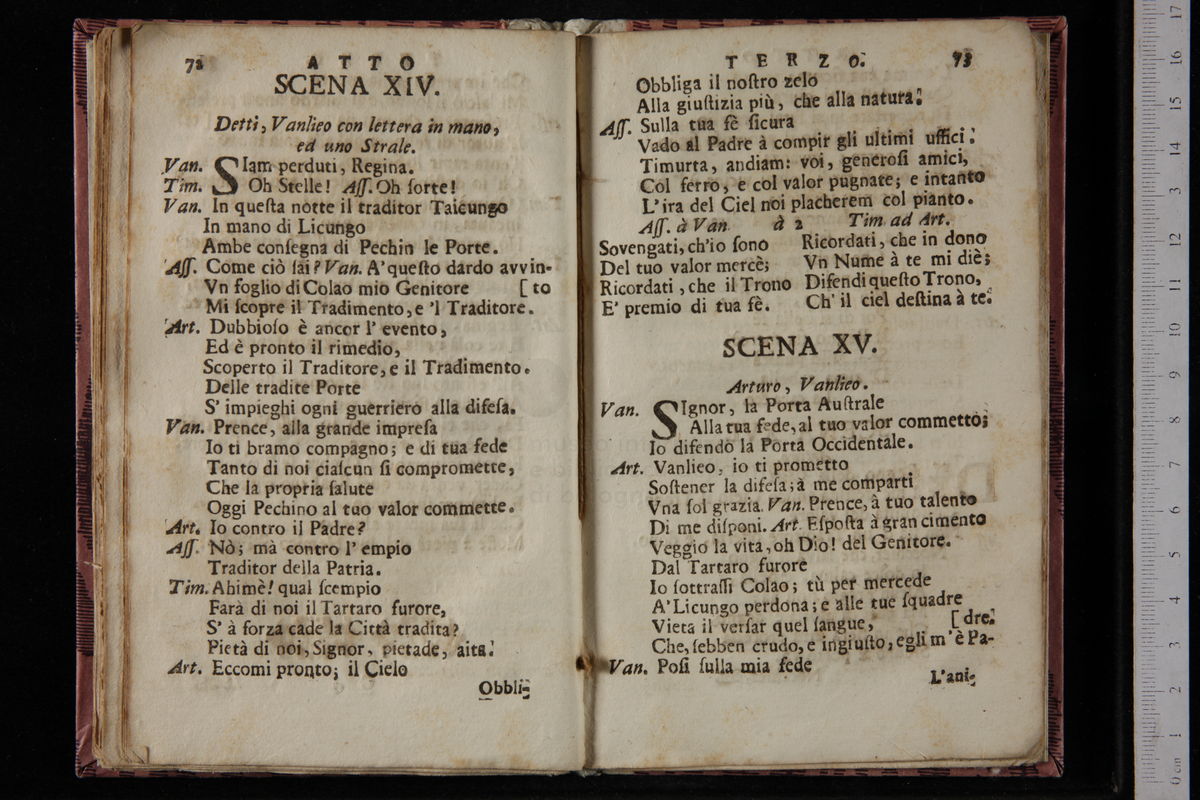 72 ATTO
SCENA XIV.
Detti, Vanlieo con lettera in mano,
ed uno Strale.
Van. SIam perduti, Regina.
Tim. Oh Stelle! Aſſ. Oh ſorte!
Van. In queſta notte il traditor Taicungo
In mano di Licungo
Ambe conſegna di Pechin le Porte.
Aſſ. Come ciò ſai? Van. A' queſto dardo avvin-
Vn foglio di Colao mio Genitore [to
Mi ſcopre il Tradimento, e 'l Traditore.
Art. Dubbioſo è ancor l' evento,
Ed è pronto il rimedio,
Scoperto il Traditore, e il Tradimento.
Delle tradite Porte
S' impieghi ogni guerriero alla difeſa.
Van. Prence, alla grande impreſa
Io ti bramo compagno; e di tua fede
Tanto di noi ciaſcun ſi compromette,
Che la propria ſalute
Oggi Pechino al tuo valor commette.
Art. Io contro il Padre?
Aſſ. Nò; mà contro l' empio
Traditor della Patria.
Tim. Ahimè! qual ſcempio
Farà di noi il Tartaro furore,
S' à forza cade la Città tradita?
Pietà di noi, Signor, pietade, aita!
Art. Eccomi pronto; il Cielo
Obbli-
TERZO. 73
Obbliga il noſtro zelo
Alla giuſtizia più, che alla natura.
Aſſ. Sulla tua fè ſicura
Vado al Padre à compir gli ultimi uffici.
Timurta, andiam: voi, generoſi amici,
Col ferro, e col valor pugnate; e intanto
L' ira del Ciel noi placherem col pianto.
Aſſ. à Van. à 2 Tim. ad Art.
Sovengati, ch'io ſono Ricordati, che in dono
Del tuo valor mercè; Vn Nume à te mi diè;
Ricordati, che il Trono Difendi queſto Trono,
E' premio di tua fè. Ch' il ciel deſtina à te.
SCENA XV.
Arturo, Vanlieo.
Van. SIgnor, la Porta Auſtrale
Alla tua fede, al tuo valor commetto;
Io difendo la Porta Occidentale.
Art. Vanlieo, io ti prometto
Soſtener la difeſa; à me comparti
Vna ſol grazia. Van. Prence, à tuo talento
Di me diſponi. Art. Eſpoſta à gran cimento
Veggio la vita, oh Dio! del Genitore.
Dal Tartaro furore
Io ſottraſſi Colao; tù per mercede
A' Licungo perdona; e alle tue ſquadre
Vieta il verſar quel ſangue, [dre.
Che, ſebben crudo, e ingiuſto, egli m' è Pa-
Van. Poſi ſulla mia fede
L'ani-